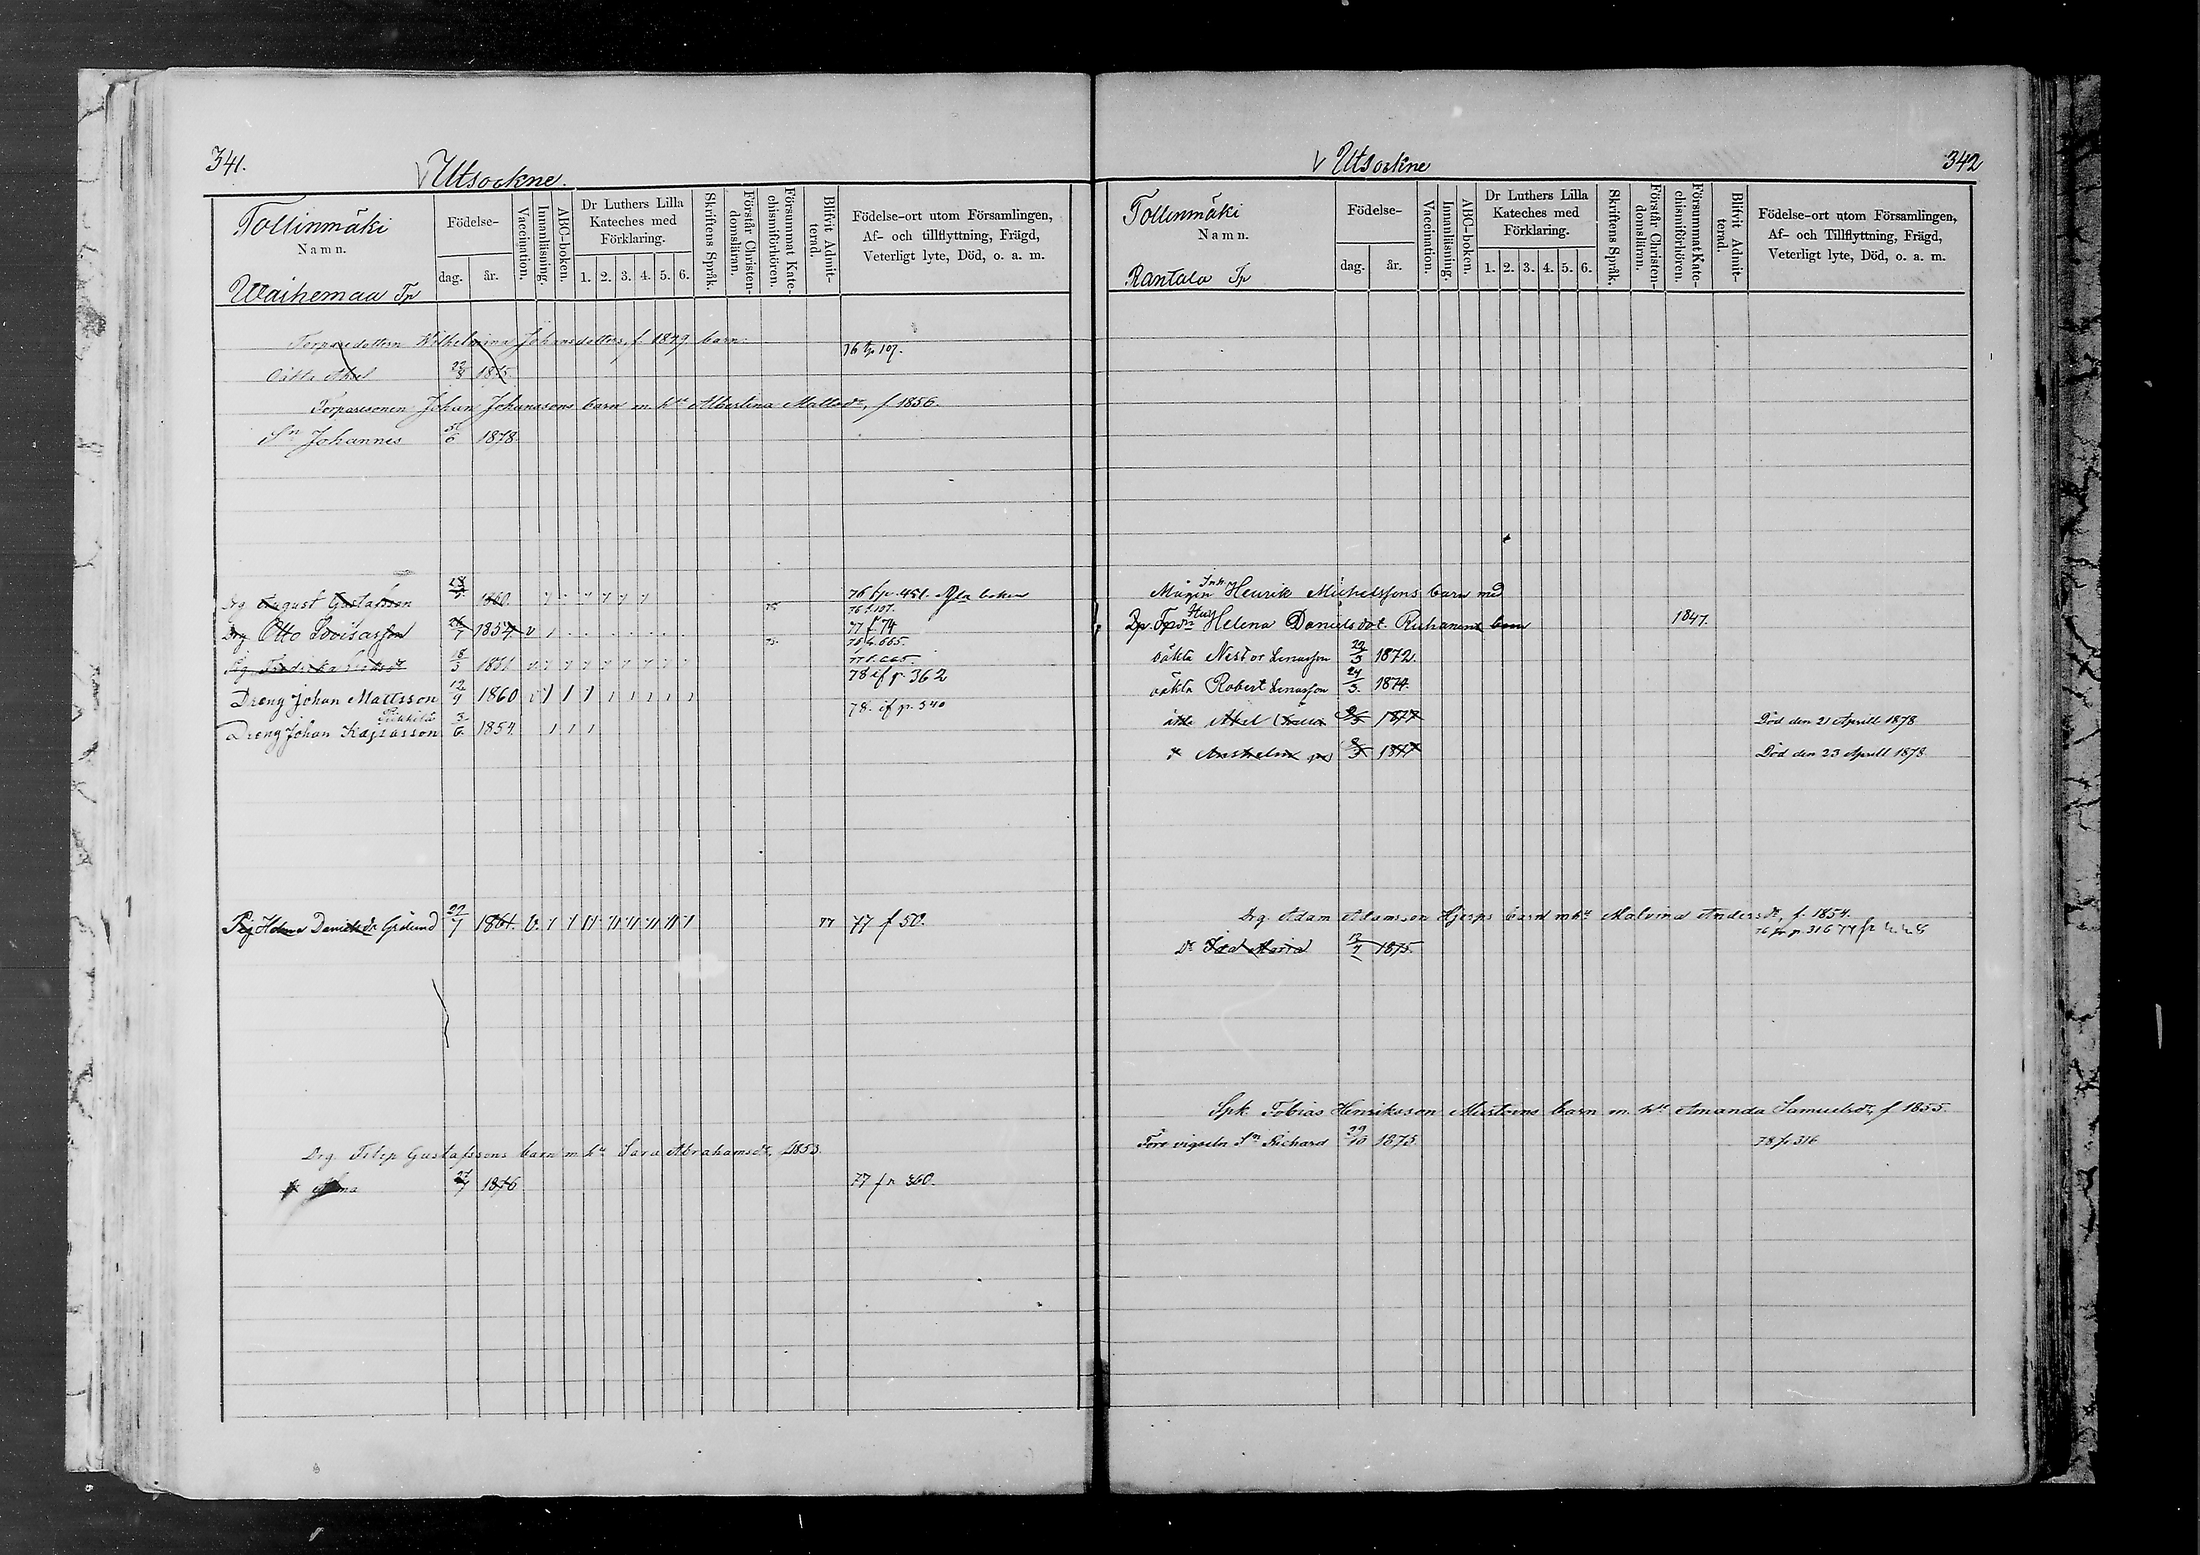 341.
Utsockne.
Tollinmäki
Namn.
Waihemaa Tp
Födelse-
dag.
år.
Vaccination.
Innanläsning.
ABC-boken.
Dr Luthers Lilla
Kateches med
Förklaring.
1. 2. 3. 4. 5. 6.
Skriftens Språk.
Förstår Christen-
domsläran.
Försummat Kate-
chismiförhören.
Blifvit Admit-
terad.
Födelse-ort utom Församlingen,
Af- och tillflyttning, Frägd,
Veterligt lyte, Död, o. a. m.
Torparedottern Wilhelmina Johansdotters, f. 1849 barn:
76 fp 107.
Oäkta Axel 22/8 1875.
Torparesonen Johan Johanssons barn m. h:u Albertina Mattsdr, f 1856.
Sn Johannis 5/6 1878.
Drg August Gustafsson 1860. 76 fp. 451.
76 f. 107.
Drg Otto Lovisasson 26/7 1854 v 77 f 74
75
76 fr. 665.
18/3 1851
77 f. 665.
78 if p. 362
Dreng Johan Mattsson 12/9 1860
78. if p. 540
Dreng Johan Kajsasson 3/6 1854.
Pig Helena Danielsdr Grölund 22/7 1861. v. 77 77 f 50.
Drg. Filip Gustafssons barn m h:u Sara Abrahamsdr, f 1853.
1876 77 fr 360.
342
Utsockne
Tollinmäki
Namn.
Rantala Tp
Födelse-
dag.
år.
Vaccination.
Innanläsning.
ABC-boken.
Dr Luthers Lilla
Kateches med
Förklaring.
1. 2. 3. 4. 5. 6.
Skriftens Språk.
Förstår Christen-
domsläran.
Försummat Kate-
chismiförhören.
Blifvit Admit-
terad.
Födelse-ort utom Församlingen,
Af- och Tillflyttning, Frägd,
Veterligt lyte, Död, o. a. m.
Inh.
Mågen Henrik Michelssons barn med
Hust
Helena Danielsdot. barn 1847.
oäkta Nestor Lenasson 22/3 1872.
oäkta Robert Lenasson 24/3. 1874.
äkta Axel 1877 Död den 21 Aprill 1878
Anshelm 1877 Död den 23 Aprill 1878
Drg. Adam Adamsson Hjerps barn m h:u Malvina Andersdr, f. 1854.
76 fr p. 316
Dr Ida Maria 1875.
Spk. Tobias Henriksson barn m. h:u Amanda Samuelsdr, f 1855.
Före vigseln Sn Richard 29/10 1875 78 fr 316